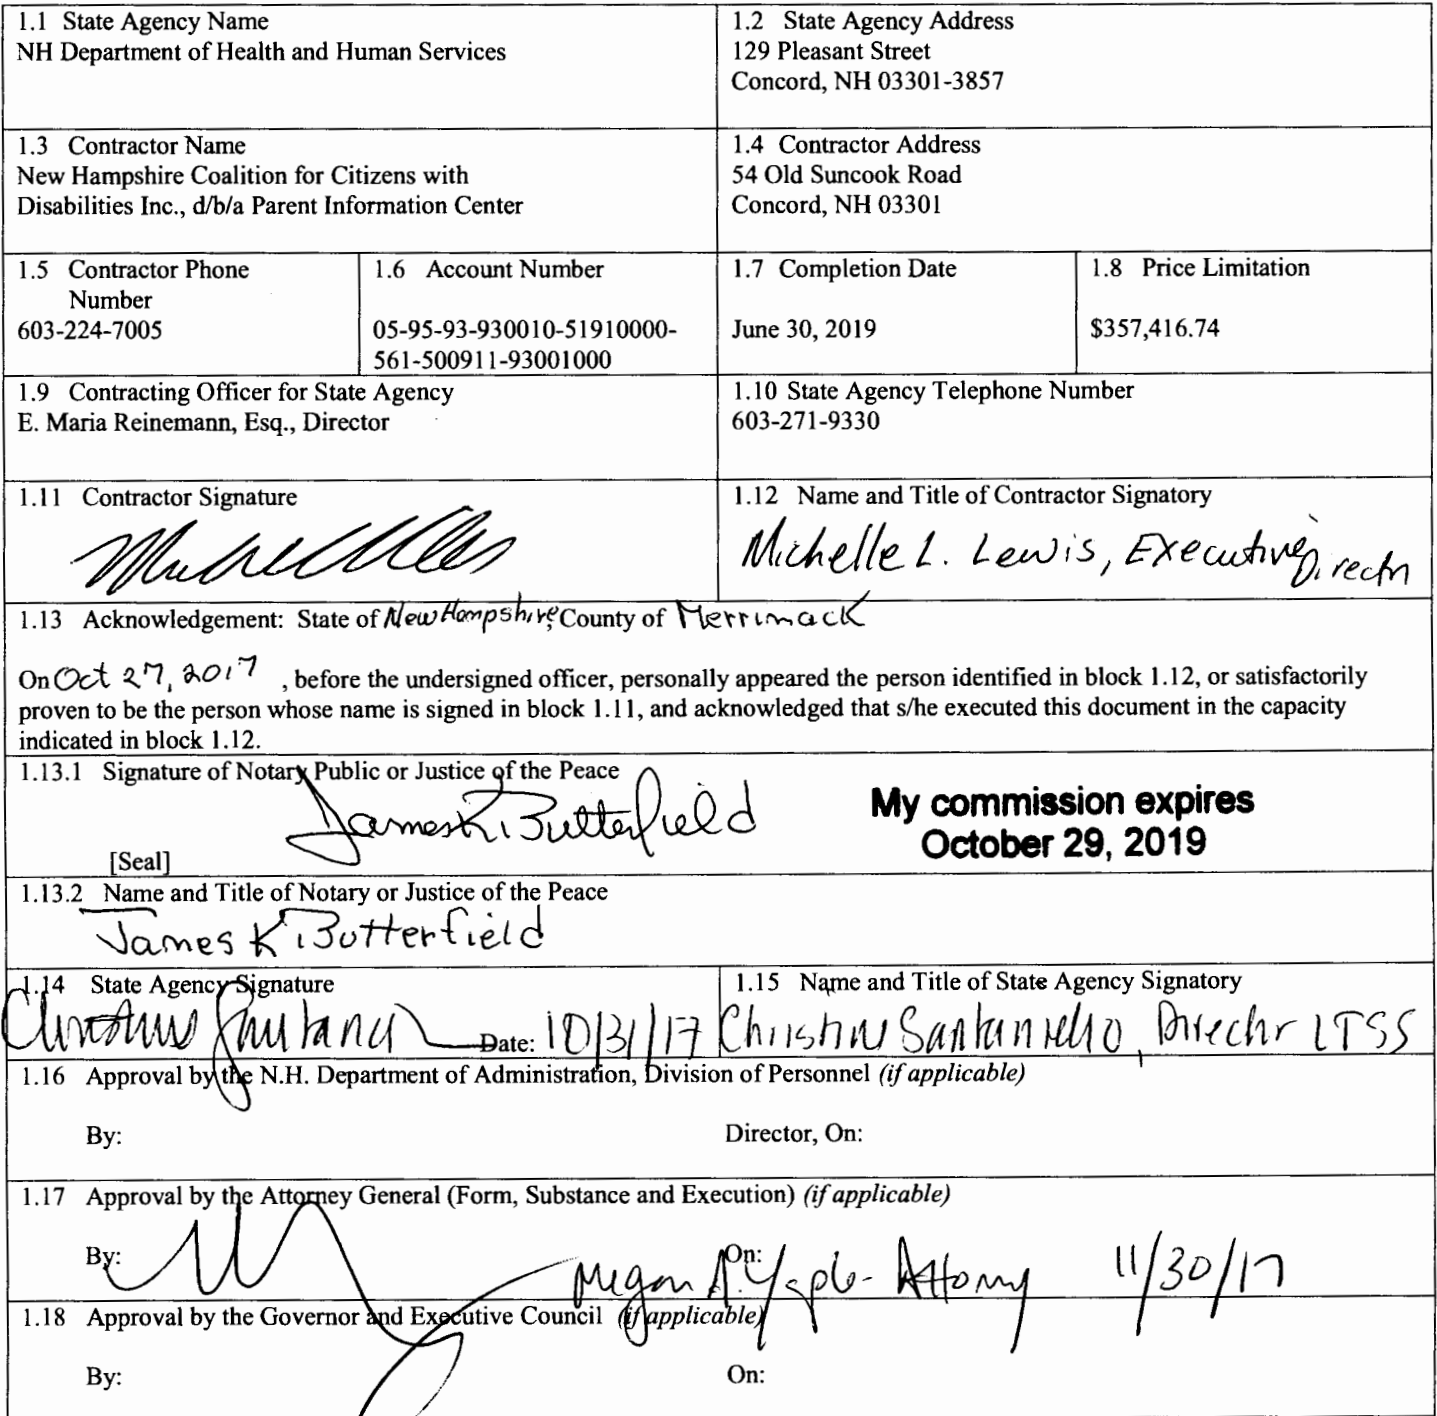 1.1 State Agency Name
NH Department of Health and Human Services
1.2 State Agency Address
129 Pleasant Street
Concord, NH 03301-3857
1.3 Contractor Name
New Hampshire Coalition for Citizens with
Disabilities Inc., d/b/a Parent Information Center
1.4 Contractor Address
54 Old Suncook Road
Concord, NH 03301
1.5 Contractor Phone
Number
603-224-7005
1.6 Account Number
05-95-93-930010-51910000-
561-500911-93001000
1.7 Completion Date
June 30, 2019
1.8 Price Limitation
$357,416.74
1.9 Contracting Officer for State Agency
E. Maria Reinemann, Esq., Director
1.10 State Agency Telephone Number
603-271-9330
1.11 Contractor Signature
1.12 Name and Title of Contractor Signatory
Michelle L. Lewis, Executive Director
1.13 Acknowledgement: State of New Hampshire, County of Merrimack
On Oct 27, 2017 , before the undersigned officer, personally appeared the person identified in block 1.12, or satisfactorily
proven to be the person whose name is signed in block 1.11, and acknowledged that s/he executed this document in the capacity
indicated in block 1.12.
1.13.1 Signature of Notary Public or Justice of the Peace
James K Butterfield
[Seal]
My commission expires
October 29, 2019
1.13.2 Name and Title of Notary or Justice of the Peace
James K Butterfield
1.14 State Agency Signature
Date: 10/31/17
1.15 Name and Title of State Agency Signatory
Christine Santaniello, Director LTSS
1.16 Approval by the N.H. Department of Administration, Division of Personnel (if applicable)
By:
Director, On:
1.17 Approval by the Attorney General (Form, Substance and Execution) (if applicable)
By:
On:
Megan A. Attorney 11/30/17
1.18 Approval by the Governor and Executive Council (if applicable)
By:
On: